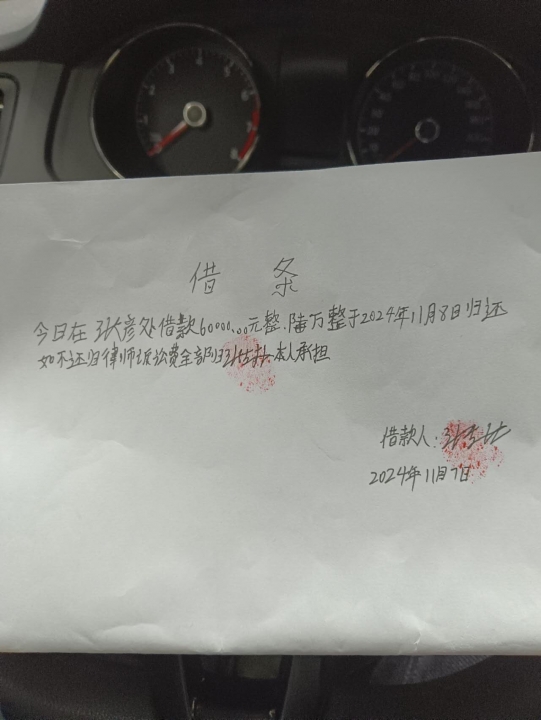 借 条
今日在张彦处借款60000.00元整.陆万整于2024年11月8日归还
如不还归律师诉讼费全部归 本人承担
借款人:
2024年11月7日